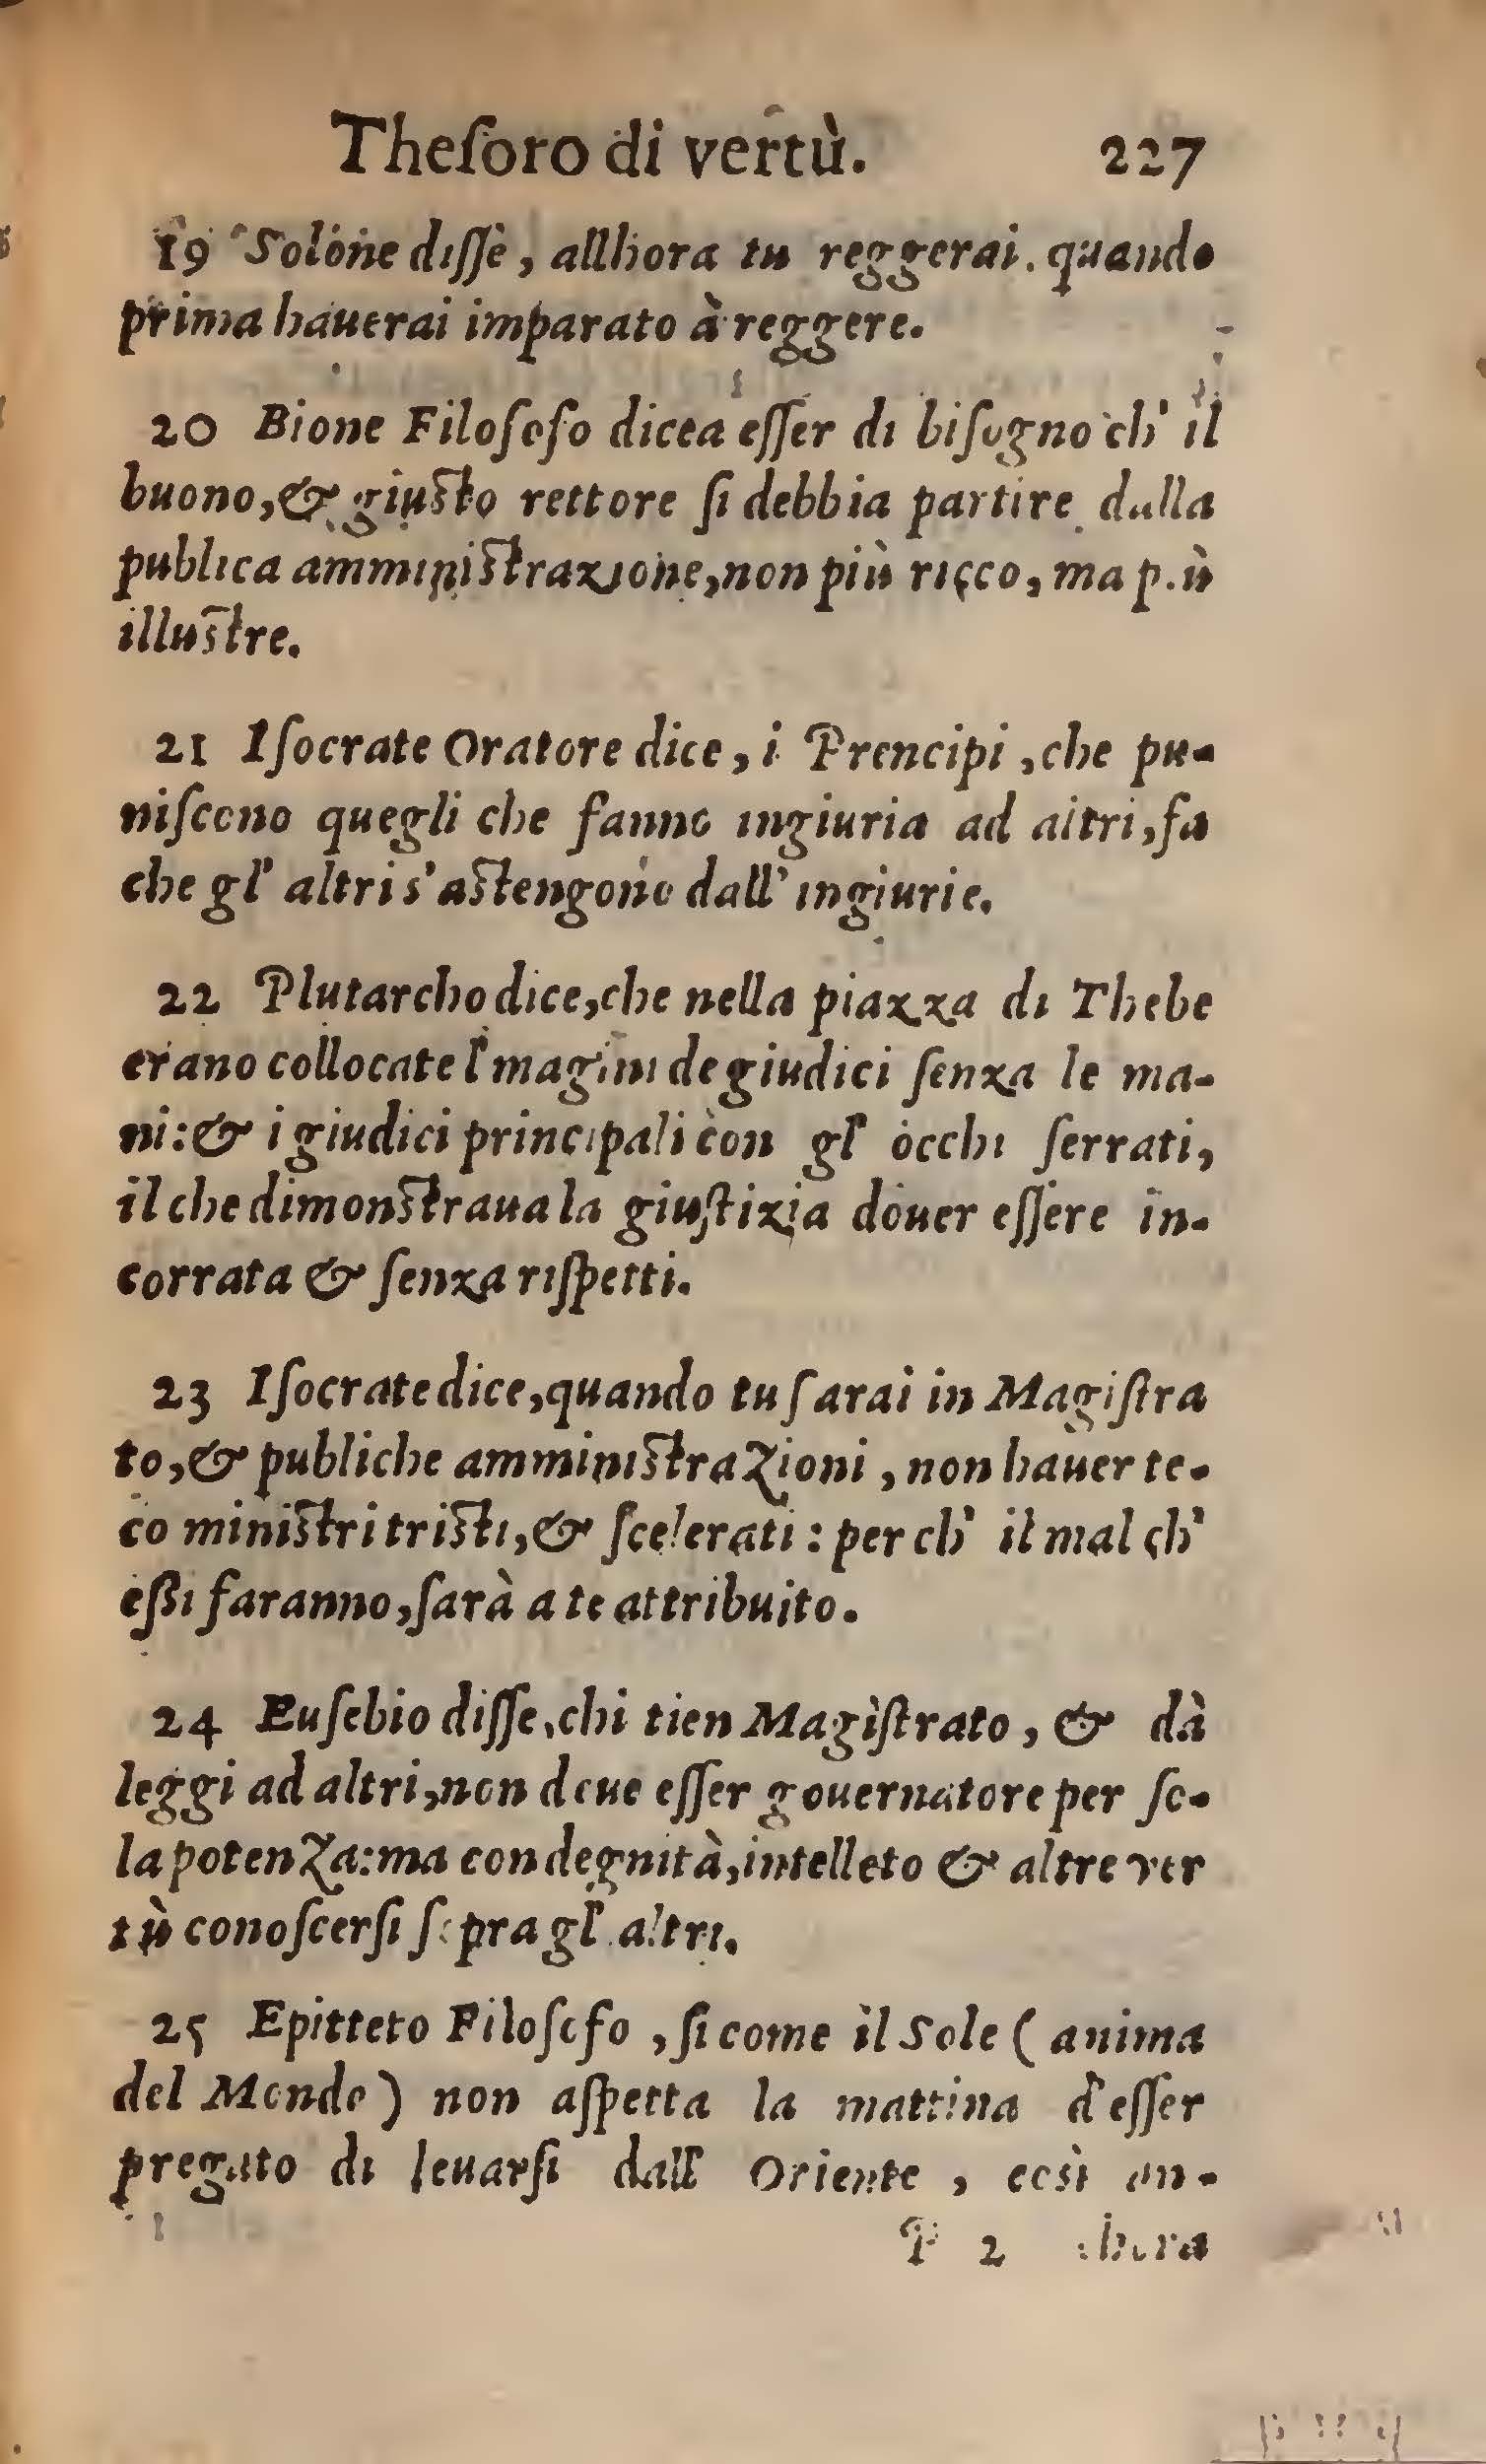 Theſoro di vertù. 227
19 Solone diſſe, allhora tu reggerai. quando
prima hauerai imparato à reggere.
20 Bione Filoſofo dicea eſſer di biſogno ch' il
buono, & giuſto rettore ſi debbia partire dalla
publica amminiſtrazione, non più ricco, ma più
illuſtre.
21 Iſocrate Oratore dice, i Prencipi, che pu-
niſcono quegli che fanno ingiuria ad altri, fa
che gl' altri s'aſtengono dall' ingiurie.
22 Plutarcho dice, che nella piazza di Thebe
erano collocate l'magini de giudici ſenza le ma-
ni: & i giudici principali con gl' occhi ſerrati,
il che dimonſtraua la giuſtizia douer eſſere in-
corrata & ſenza riſpetti.
23 Iſocrate dice, quando tu ſarai in Magiſtra
to, & publiche amminiſtrazioni, non hauer te-
co miniſtri triſti, & ſcelerati: per ch' il mal ch'
eßi faranno, ſarà a te attribuito.
24 Euſebio diſſe, chi tien Magiſtrato, & dà
leggi ad altri, non deue eſſer gouernatore per ſo-
la potenza: ma con degnità, intelleto & altre ver
tù conoſcerſi ſopra gl' altri.
25 Epitteto Filoſofo, ſi come il Sole (anima
del Mondo) non aſpetta la mattina d'eſſer
pregato di leuarſi dall' Oriente, così an-
P 2 chora